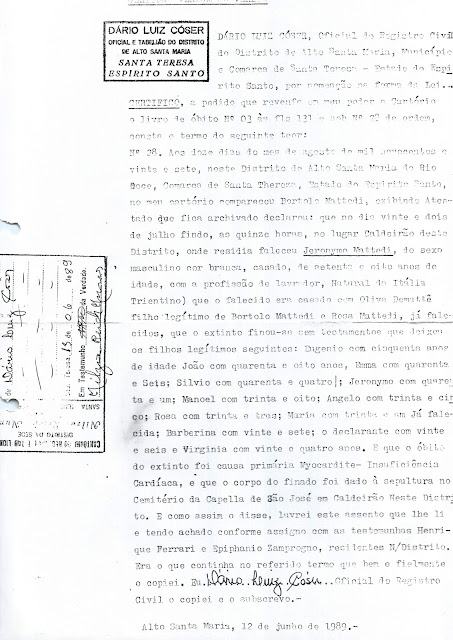 DÁRIO LUIZ CÓSER
OFICIAL E TABELIÃO DO DISTRITO
DE ALTO SANTA MARIA
SANTA TERESA
ESPÍRITO SANTO
DÁRIO LUIZ CÓSER, Oficial do Registro Civil
do Distrito de Alto Santa Maria, Município
e Comarca de Santa Teresa - Estado do Espí
rito Santo, por nomeação na forma da Lei...
CERTIFICO, a pedido que revendo em meu poder e Cartório
o livro de óbito Nº 03 às fls 131 e sob Nº 28 de ordem,
consta o termo do seguinte teor:
Nº 28. Aos doze dias do mes de agosto de mil novecentos e
vinte e sete, neste Distrito de Alto Santa Maria do Rio
Doce, Comarca de Santa Thereza, Estado do Espírito Santo,
no meu cartório compareceu Bortolo Mattedi, exibindo Ates-
tado que fica archivado declarou: que no dia vinte e dois
de julho findo, as quinze horas, no lugar Caldeirão deste
Distrito, onde residia faleceu Jeronymo Mattedi, do sexo
masculino cor branca, casado, de setenta e oito anos de
idade, com a profissão de lavrador, Natural da Itália
Trientino) que o falecido era casado com Oliva Demattê
filho legítimo de Bortolo Mattedi e Rosa Mattedi, já fale-
cidos, que o extinto finou-se sem testamentos que deixou
os filhos legítimos seguintes: Eugenio com cinquenta anos
de idade João com quarenta e oito anos, Emma com quarenta
e Seis; Silvio com quarenta e quatro; Jeronymo com quaren
ta e um; Manoel com trinta e oito; Angelo com trinta e ci
co; Rosa com trinta e tres; Maria com trinta e um Já fale-
cida; Barberina com vinte e sete; o declarante com vinte
e seis e Virginia com vinte e quatro anos. E que o óbito
do extinto foi causa primária Myocardite- Insuficiência
Cardíaca, e que o corpo do finado foi dado à sepultura no
Cemitério da Capella de São José em Caldeirão Neste Distri
to. E como assim o disse, lavrei este assento que lhe li
e tendo achado conforme assigno com as testemunhas Henri-
que Ferrari e Epiphanio Zamprogno, recidentes N/Distrito.
Era o que continha no referido termo que bem e fielmente
o copiei. Eu. Dário Luiz Cóser ..Oficial do Registro
Civil o copiei e o subscrevo.-
Alto Santa Maria, 12 de junho de 1989.-
de Dário Luiz Cóser
Sta. Teresa 13 de 06 de 89
Em Testemunho da Verdade.
SANTA
DISTRITO DA SEDE